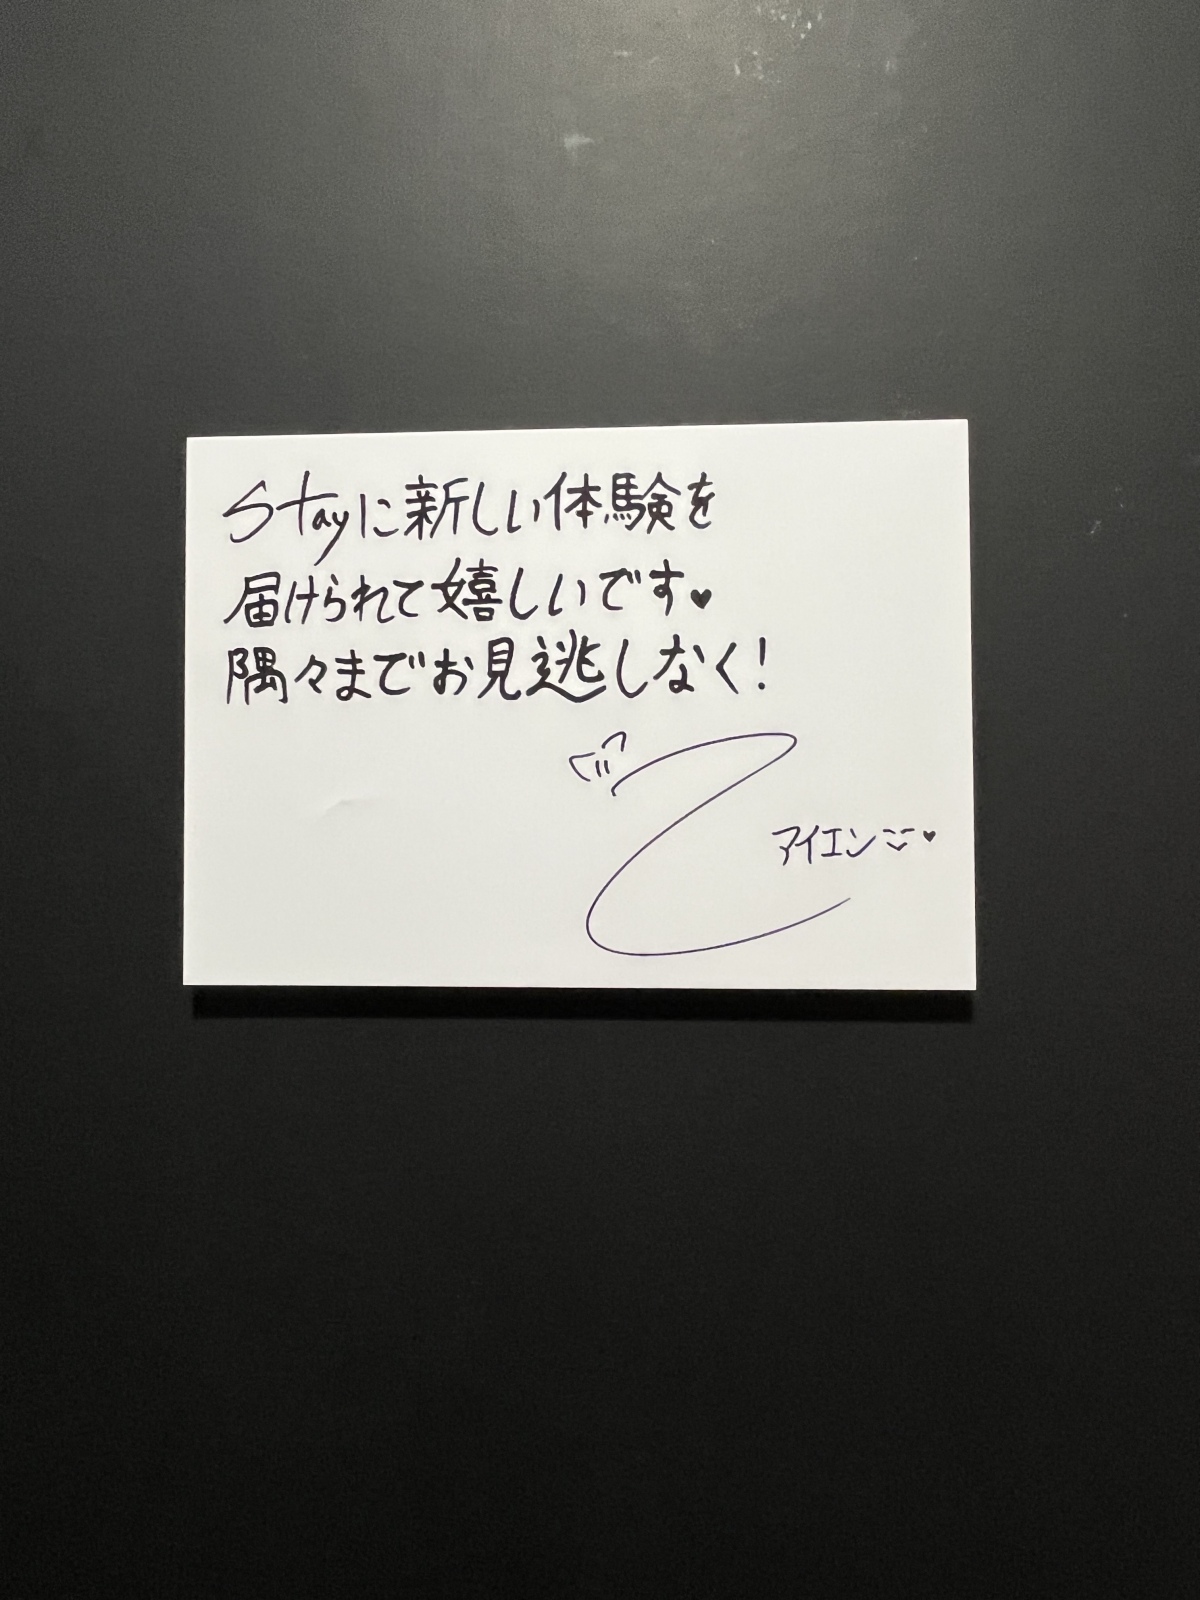 Stayに新しい体験を
届けられて嬉しいです♥
隅々までお見逃しなく!
アイエン♥